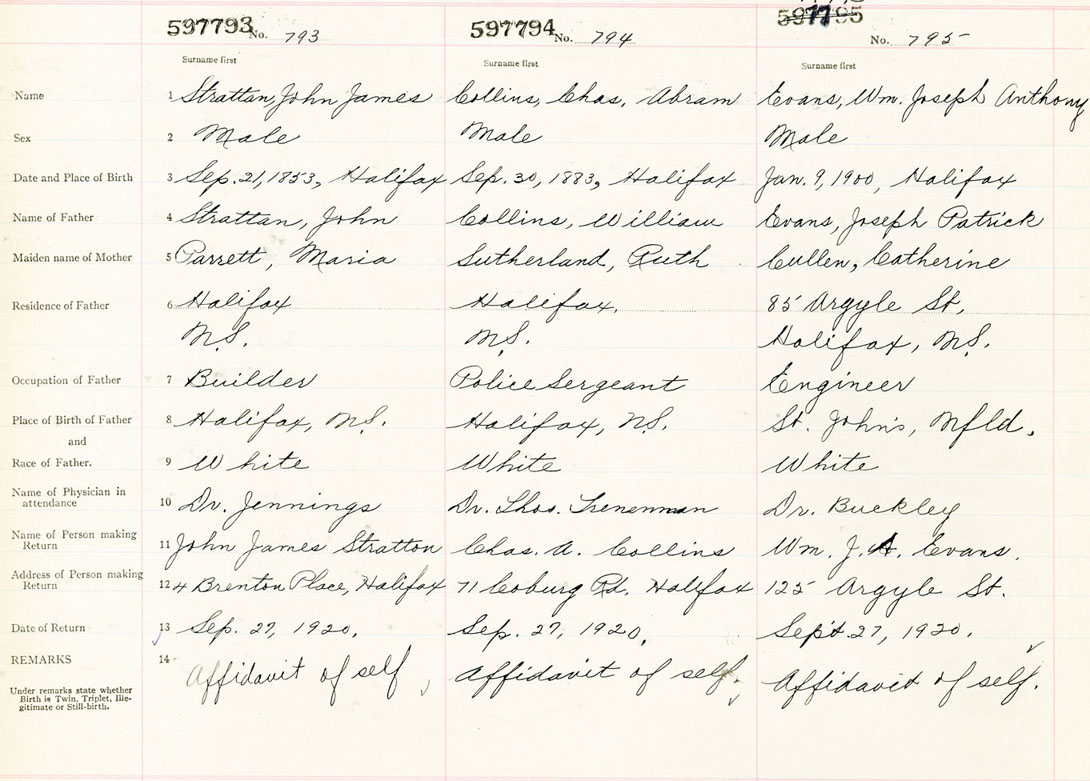 597793 No. 793 597794 No. 794 597795 No. 795
Surname first Surname first Surname first
Name 1 Strattan, John James Collins, Chas. Abram Evans, Wm. Joseph Anthony
Sex 2 Male Male Male
Date and Place of Birth 3 Sep. 21, 1853, Halifax Sep. 30, 1883, Halifax Jan. 9, 1900, Halifax
Name of Father 4 Strattan, John Collins, William Evans, Joseph Patrick
Maiden name of Mother 5 Parrett, Maria Sutherland, Ruth Cullen, Catherine
Residence of Father 6 Halifax Halifax, 85 Argyle St,
N.S. N.S. Halifax, N.S.
Occupation of Father 7 Builder Police Sergeant Engineer
Place of Birth of Father 8 Halifax, N.S. Halifax, N.S. St. John's, Nfld,
and
Race of Father. 9 White White White
Name of Physician in
attendance 10 Dr. Jennings Dr. Thos. Trenemman Dr. Buckley
Name of Person making
Return 11 John James Stratton Chas. A. Collins Wm. J. A. Evans.
Address of Person making
Return 12 4 Brenton Place, Halifax 71 Coburg Rd. Halifax 125 Argyle St.
Date of Return 13 Sep. 27, 1920. Sep. 27, 1920. Sept. 27, 1920.
REMARKS 14 Affidavit of self Affidavit of self. Affidavit of self.
Under remarks state whether
Birth is Twin, Triplet, Ille-
gitimate or Still-birth.